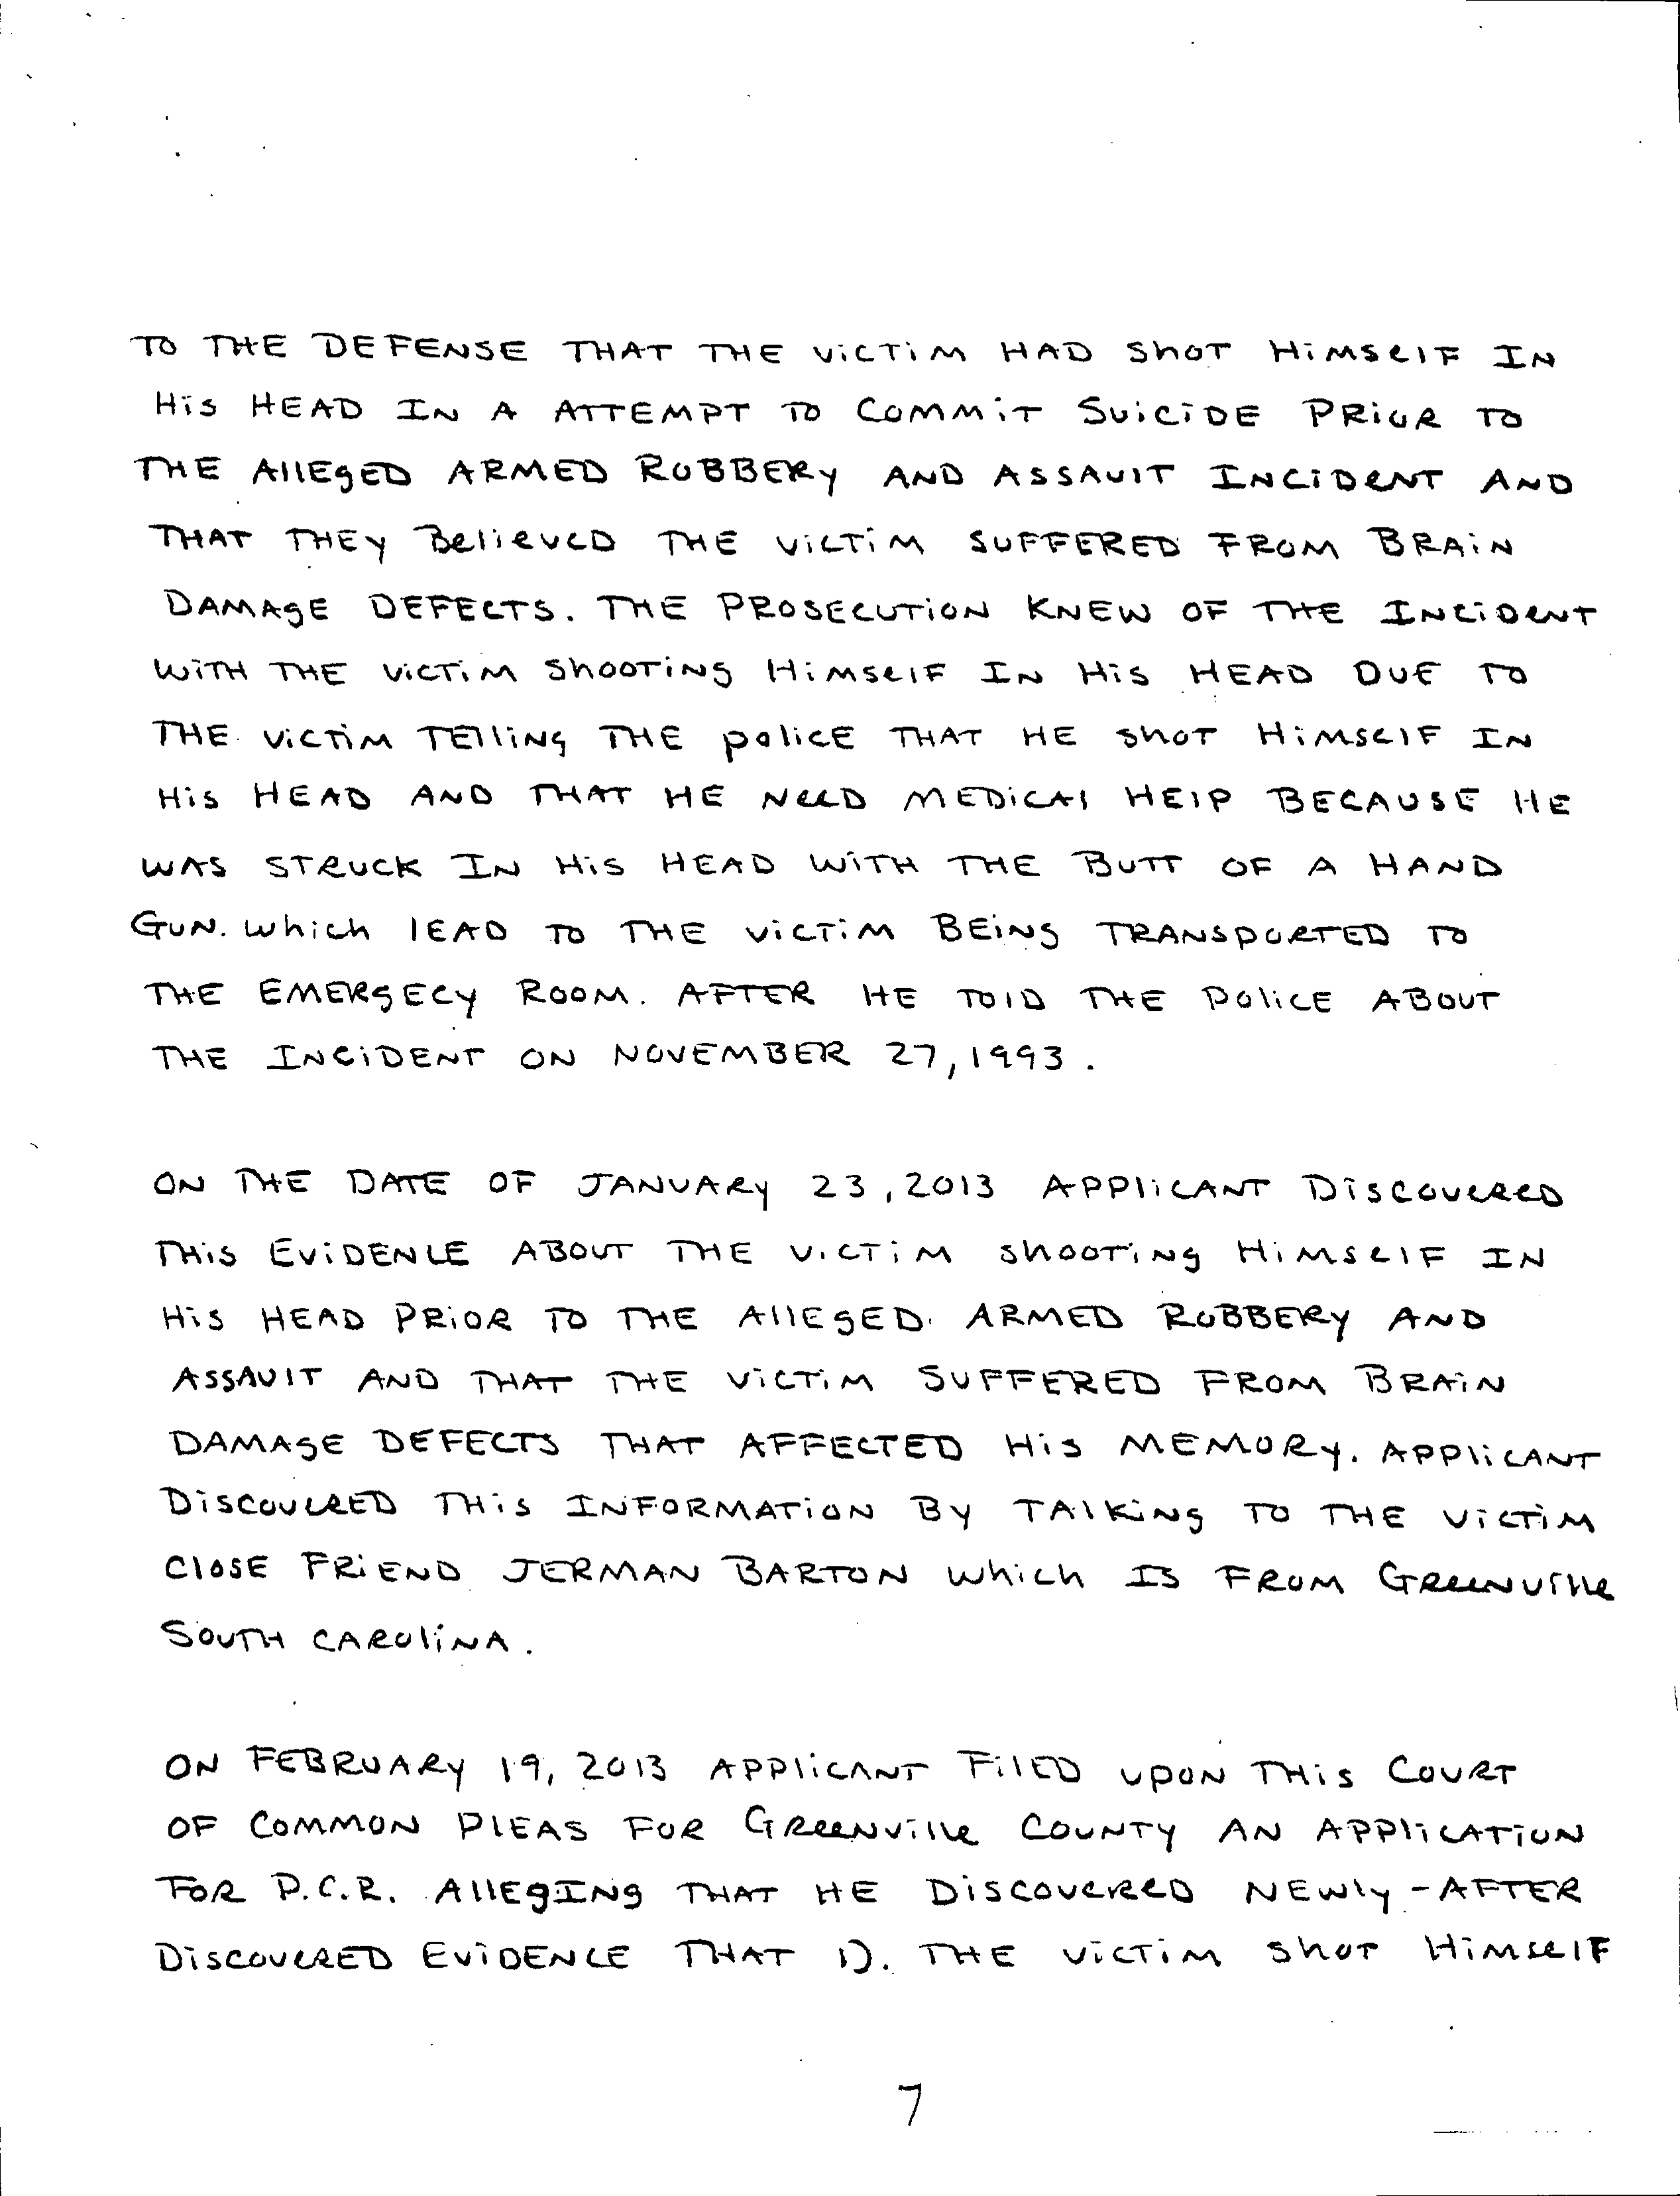 TO THE DEFENSE THAT THE VICTIM HAD SHOT HIMSELF IN
HIS HEAD IN A ATTEMPT TO COMMIT SUICIDE PRIOR TO
THE ALLEGED ARMED ROBBERY AND ASSAULT INCIDENT AND
THAT THEY BELIEVED THE VICTIM SUFFERED FROM BRAIN
DAMAGE DEFECTS. THE PROSECUTION KNEW OF THE INCIDENT
WITH THE VICTIM SHOOTING HIMSELF IN HIS HEAD DUE TO
THE VICTIM TELLING THE POLICE THAT HE SHOT HIMSELF IN
HIS HEAD AND THAT HE NEED MEDICAL HELP BECAUSE HE
WAS STRUCK IN HIS HEAD WITH THE BUTT OF A HAND
GUN. WHICH LEAD TO THE VICTIM BEING TRANSPORTED TO
THE EMERGECY ROOM. AFTER HE TOLD THE POLICE ABOUT
THE INCIDENT ON NOVEMBER 27, 1993.
ON THE DATE OF JANUARY 23, 2013 APPLICANT DISCOVERED
THIS EVIDENCE ABOUT THE VICTIM SHOOTING HIMSELF IN
HIS HEAD PRIOR TO THE ALLEGED ARMED ROBBERY AND
ASSAULT AND THAT THE VICTIM SUFFERED FROM BRAIN
DAMAGE DEFECTS THAT AFFECTED HIS MEMORY. APPLICANT
DISCOVERED THIS INFORMATION BY TALKING TO THE VICTIM
CLOSE FRIEND JERMAN BARTON WHICH IS FROM GREENVILLE
SOUTH CAROLINA.
ON FEBRUARY 19, 2013 APPLICANT FILED UPON THIS COURT
OF COMMON PLEAS FOR GREENVILLE COUNTY AN APPLICATION
FOR P.C.R. ALLEGING THAT HE DISCOVERED NEWLY-AFTER
DISCOVERED EVIDENCE THAT 1). THE VICTIM SHOT HIMSELF
7